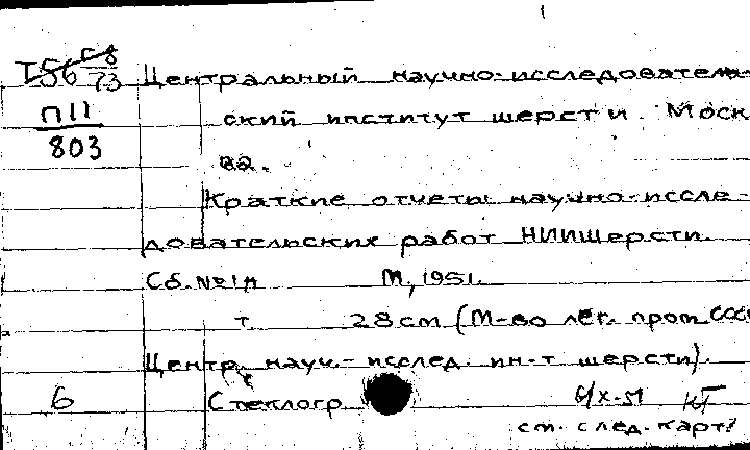 Г8
Т56 73
П11
803
Центральный научно-исследователь-
ский институт шерсти. Моск
ва.
Краткие отчеты научно-иссле-
довательских работ НИИШерсти.
Сб. № 1Л М, 1951.
т. 28 см (М-во лег. пром СССР
Центр. науч.-исслед. ин-т шерсти).
6 Стеклогр.
см. след. карт.